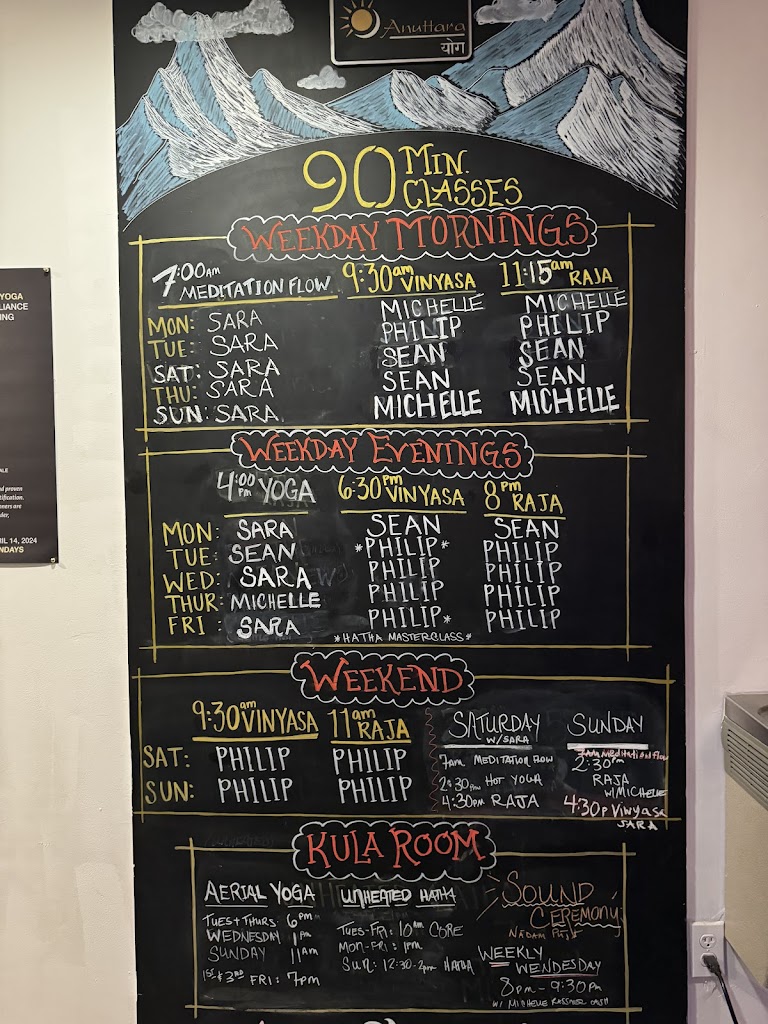 Anuttara
योग
90 MIN. CLASSES
WEEKDAY MORNINGS
7:00am MEDITATION FLOW 9:30am VINYASA 11:15am RAJA
MON: SARA MICHELLE MICHELLE
TUE: SARA PHILIP PHILIP
SAT: SARA SEAN SEAN
THU: SARA SEAN SEAN
SUN: SARA MICHELLE MICHELLE
WEEKDAY EVENINGS
4:00 pm YOGA 6:30pm VINYASA 8pm RAJA
MON: SARA SEAN SEAN
TUE: SEAN *PHILIP* PHILIP
WED: SARA PHILIP PHILIP
THUR: MICHELLE PHILIP PHILIP
FRI: SARA PHILIP* PHILIP
*HATHA MASTERCLASS*
WEEKEND
9:30am VINYASA 11am RAJA
SAT: PHILIP PHILIP
SUN: PHILIP PHILIP
SATURDAY
W/SARA
7am MEDITATION FLOW
2:30pm HOT YOGA
4:30pm RAJA
SUNDAY
7am meditation flow
2:30pm
RAJA
W/MICHELLE
4:30p Vinyasa
SARA
KULA ROOM
AERIAL YOGA
TUES+THURS: 6pm
WEDNESDAY 1pm
SUNDAY 11am
1ST & 3RD FRI: 7pm
UNHEATED HATHA
TUES-FRI: 10am CORE
MON-FRI: 1pm
SUN: 12:30-2pm HATHA
SOUND
CEREMONY
NADAM
WEEKLY
WENDESDAY
8pm-9:30pm
W/ MICHELLE
YOGA
LIANCE
ING
ALE
nd proven
tification.
oners are
der,
IL 14, 2024
NDAYS